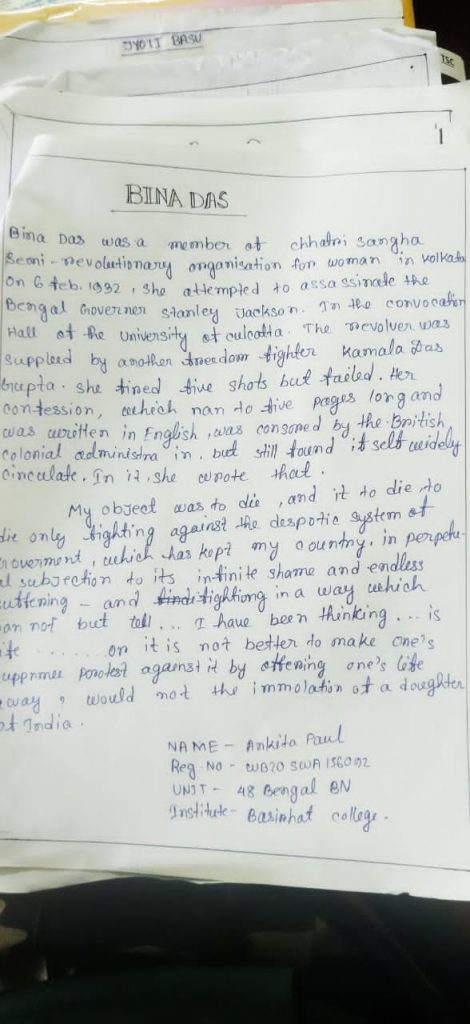 JYOTI BASU
TSC
1
BINA DAS
Bina Das was a member of chhatri sangha
semi-revolutionary organisation for woman in Kolkata
On 6 feb. 1932, she attempted to assassinate the
Bengal Governer stanley Jackson. In the convocation
Hall of the University of culcatta. The revolver was
supplied by another freedom fighter Kamala Das
Gupta. she fired five shots but failed. Her
confession, which ran to five pages long and
was written in English, was consored by the British
colonial administra in, but still found it self widely
circulate. In it, she wrote that.
My object was to die, and it to die, to
die only fighting against the despotic system of
Goverment, which has kept my country. in perpetu-
al subjection to its infinite shame and endless
suffering - and fighting in a way which
can not but tell... I have been thinking... is
life ....... or it is not better to make one's
suppremee porotest against it by offering one's life
away, would not the immolation of a daughter
of India.
NAME - Ankita Paul
Reg. No - WB20 SWA 156092
UNIT - 48 Bengal BN
Institute - Basirhat college.